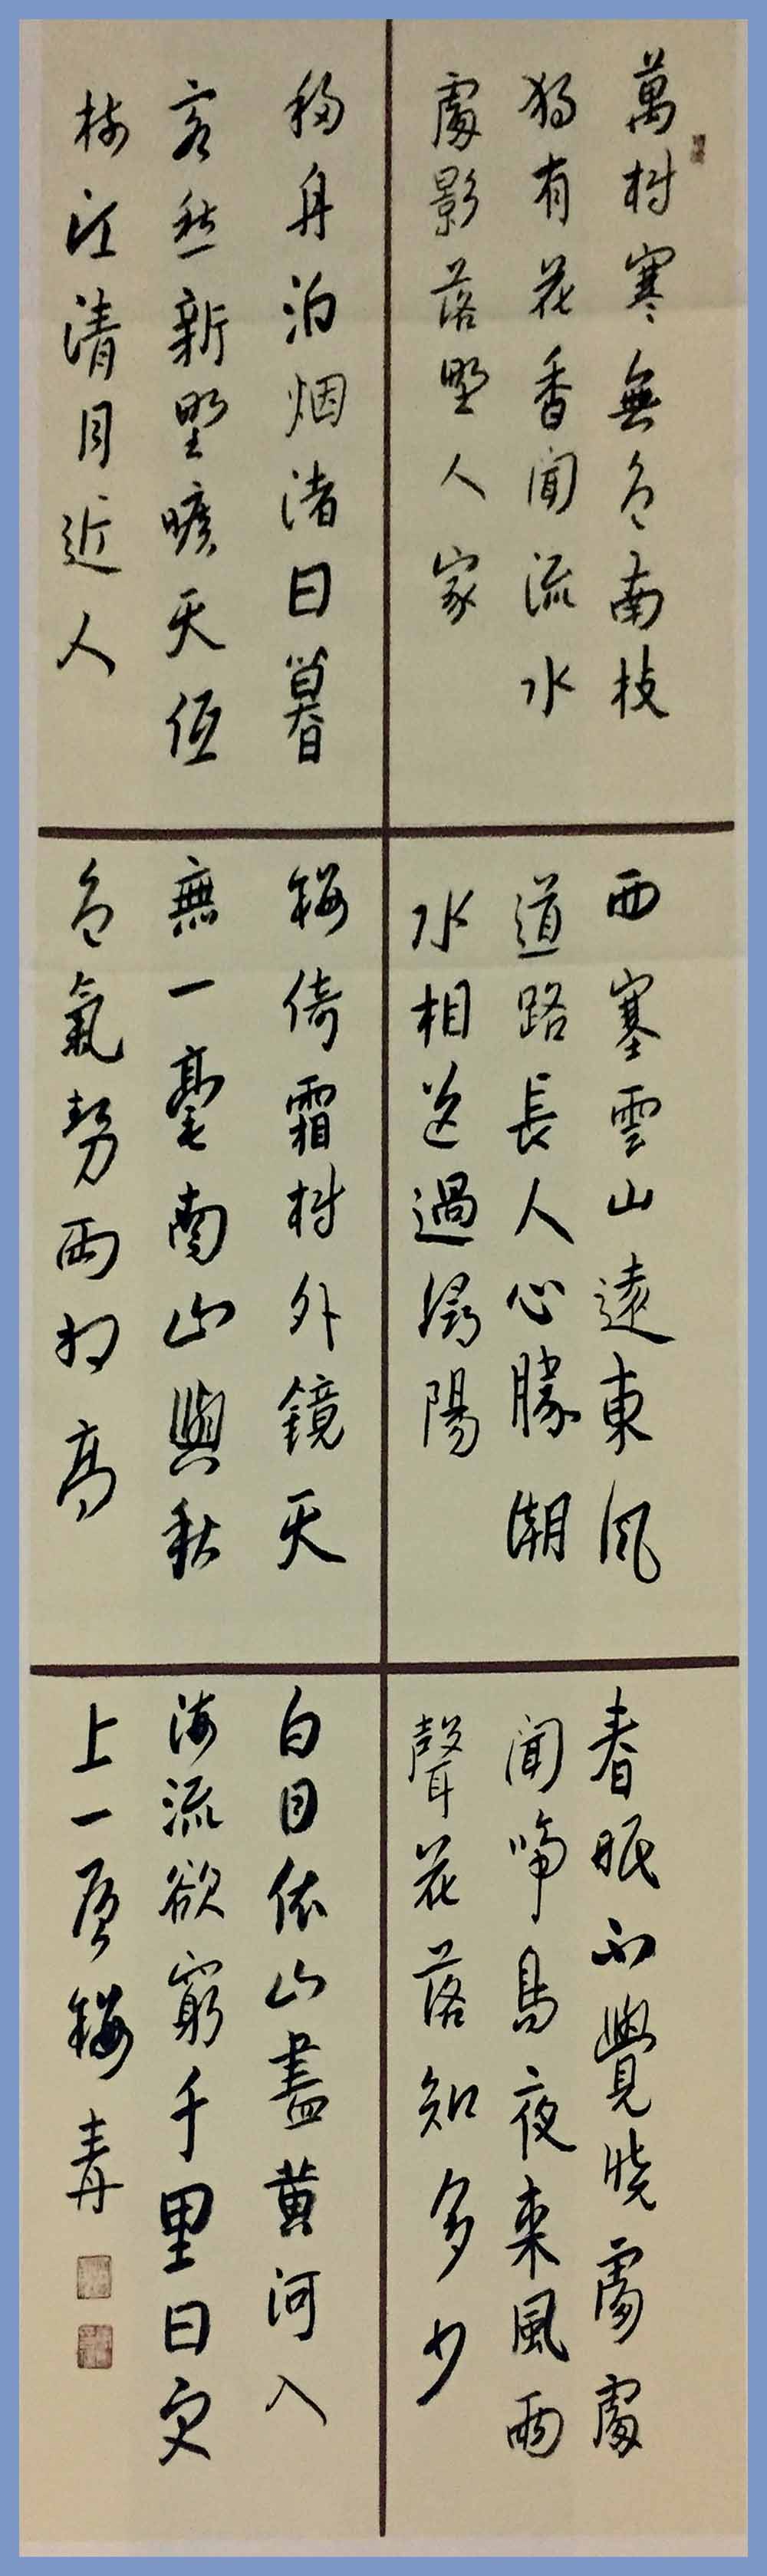 萬樹寒無色南枝
獨有花香聞流水
處影落野人家
西塞雲山遠東風
道路長人心勝潮
水相送過潯陽
春眠不覺曉處處
聞啼鳥夜來風雨
聲花落知多少
移舟泊烟渚日暮
客愁新野曠天低
樹江清月近人
樓倚霜樹外鏡天
無一毫南山與秋
色氣勢兩相高
白日依山盡黃河入
海流欲窮千里目更
上一層樓